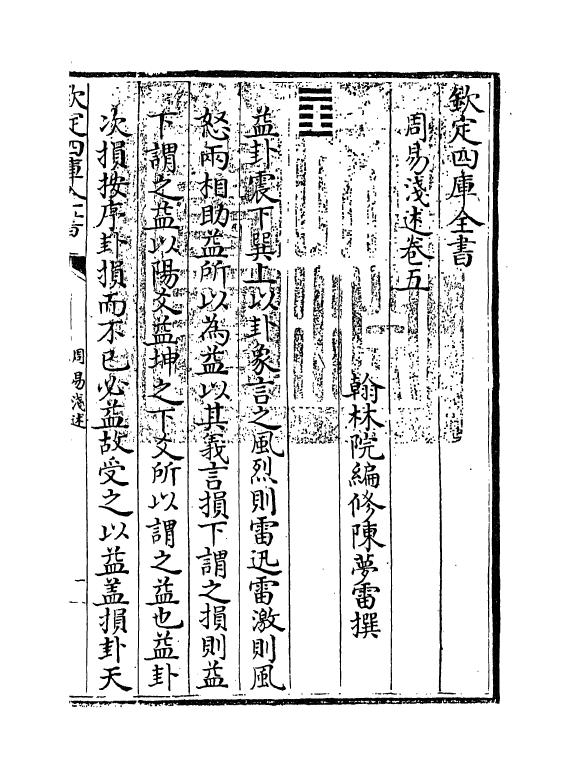 欽定四庫全書
周易淺述卷五
翰林院編修陳夢雷撰
益卦震下巽上以卦象言之風烈則雷迅雷激則風
怒兩相助益所以為益以其義言損下謂之損則益
下謂之益以陽爻益坤之下爻所以謂之益也益卦
次損按序卦損而不已必益故受之以益盖損卦天
欽定四庫全書
周易淺述
一